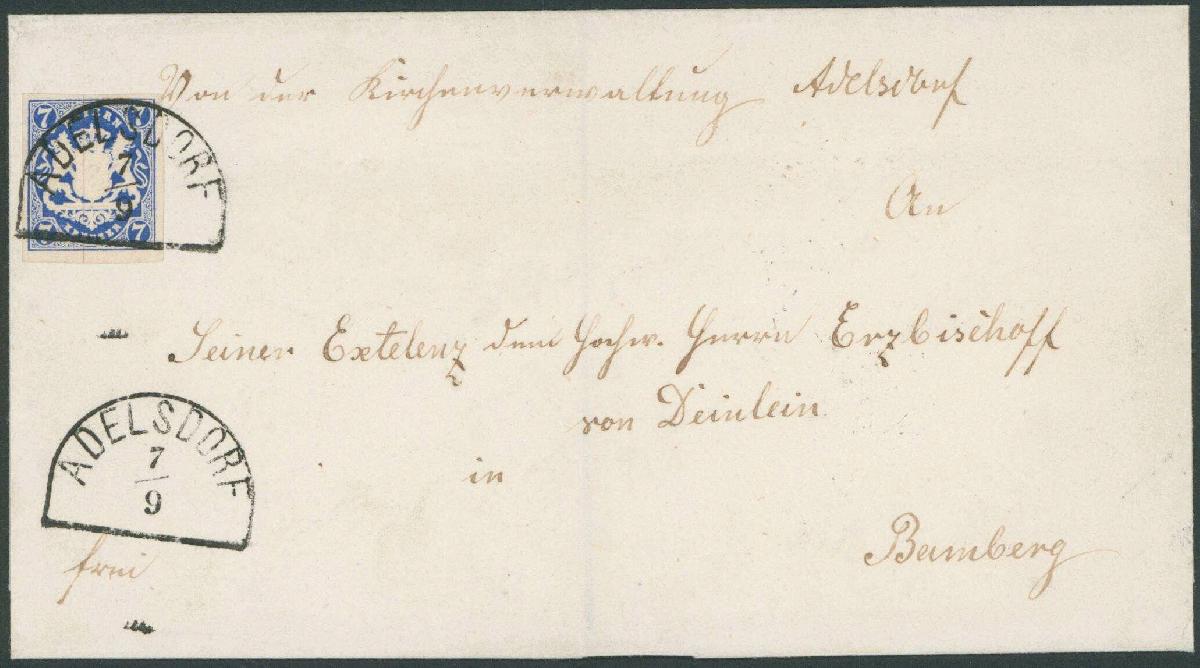 Von der Kirchenverwaltung Adelsdorf
7 7
ADELSDORF
7
9
7 7
An
Seiner Extelenz dem Hochw. Herrn Erzbischoff
von Deinlein
in
ADELSDORF
7
9
Bamberg
frei